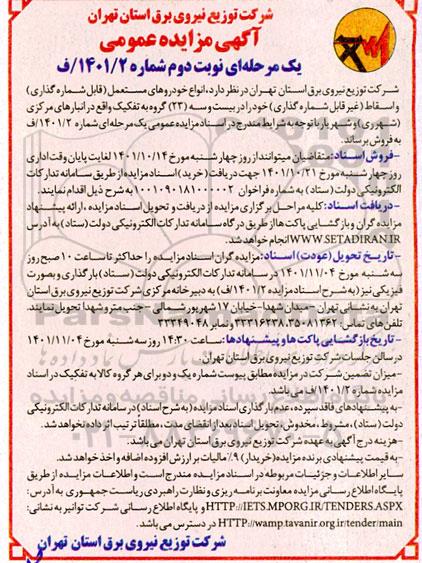 شرکت توزیع نیروی برق استان تهران
آگهی مزایده عمومی
یک مرحله‌ای نوبت دوم شماره ۱۴۰۱/۲/ف
شرکت توزیع نیروی برق استان تهران در نظر دارد، انواع خودروهای مستعمل (قابل شماره گذاری)
و اسقاط (غیر قابل شماره گذاری) خود را در بیست و سه (۲۳) گروه به تفکیک واقع در انبارهای مرکزی
(شهرری) و شهریار با توجه به شرایط مندرج در اسناد مزایده عمومی یک مرحله‌ای شماره ۱۴۰۱/۲/ف
به فروش برساند.
-فروش اسناد: متقاضیان میتوانند از روز چهارشنبه مورخ ۱۴۰۱/۱۰/۱۴ لغایت پایان وقت اداری
روز چهارشنبه مورخ ۱۴۰۱/۱۰/۲۱ جهت دریافت (خرید) اسناد مزایده از طریق سامانه تدارکات
الکترونیکی دولت (ستاد) به شماره فراخوان ۱۰۰۱۰۹۰۱۸۱۰۰۰۰۰۲ به شرح ذیل اقدام نمایند.
-دریافت اسناد: کلیه مراحل برگزاری مزایده از دریافت و تحویل اسناد مزایده، ارائه پیشنهاد
مزایده گران و بازگشایی پاکت ها از طریق درگاه سامانه تدارکات الکترونیکی دولت (ستاد) به آدرس
WWW.SETADIRAN.IR انجام خواهد شد.
-تاریخ تحویل (عودت) اسناد: مزایده گران اسناد مزایده را حداکثر تا ساعت ۱۰ صبح روز
سه شنبه مورخ ۱۴۰۱/۱۱/۰۴ در سامانه تدارکات الکترونیکی دولت (ستاد) بارگذاری و بصورت
فیزیکی نیز (به شرح اسناد مزایده ۱۴۰۱/۲/ف) به دبیرخانه مرکزی شرکت توزیع نیروی برق استان
تهران به نشانی تهران - میدان شهدا-خیابان ۱۷ شهریور شمالی - جنب مترو شهدا تحویل نمایند.
تلفن های تماس: ۳۵۰۸۱۳۶۲-۳۳۳۱۶۲۳۸ و نمابر ۳۳۳۴۹۰۴۸
-تاریخ بازگشایی پاکت ها و پیشنهادها: ساعت ۱۴:۳۰ روز سه شنبه مورخ ۱۴۰۱/۱۱/۰۴
در سالن جلسات شرکت توزیع نیروی برق استان تهران.
-میزان تضمین شرکت در مزایده مطابق پیوست شماره یک و دو برای هر گروه کالا به تفکیک در اسناد
مزایده شماره ۱۴۰۱/۲/ف می باشد.
-به پیشنهادهای فاقد سپرده، عدم بارگذاری اسناد مزایده (به شرح اسناد) در سامانه تدارکات الکترونیکی
دولت (ستاد)، مشروط، مخدوش، تحویل اسناد بعد از انقضای مدت، مطلقا ترتیب اثر داده نخواهد شد.
-هزینه درج آگهی به عهده شرکت توزیع نیروی برق استان تهران می باشد.
-به قیمت پیشنهادی برنده مزایده (خریدار) ۹٪ مالیات بر ارزش افزوده اضافه و اخذ خواهد شد.
سایر اطلاعات و جزئیات مربوطه در اسناد مزایده مندرج است و اطلاعات مزایده از طریق
پایگاه اطلاع رسانی مزایده معاونت برنامه ریزی و نظارت راهبردی ریاست جمهوری به آدرس:
HTTP://IETS.MPORG.IR/TENDERS.ASPX و پایگاه اطلاع رسانی شرکت توانیر به نشانی:
HTTP://wamp.tavanir.org.ir/tender/main در دسترس می باشد.
شرکت توزیع نیروی برق استان تهران